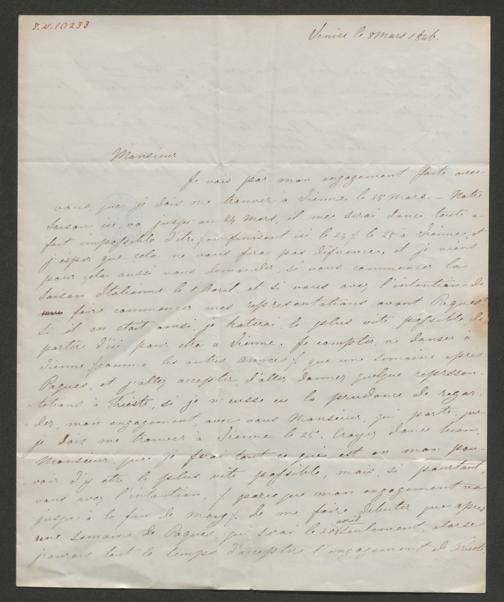 I.N. 10233
Venise le 8 Mars 1846.
Monsieur
Je vois par mon engagement faite avec
vous, que je dois me trouver à Vienne le 25 Mars. — Notre
saison ici, va jusqu'au 24 Mars, il me serai donc toute à
fait impossible d'être, en finissant ici le 24, le 25 à Vienne, et
j'esper que cela ne vous fera pas diference, et je viens
pour cela aussi vous demander, si vous commencer la
saison Italienne le 1 Avril, et si vous avez l'intention de
faire commencer mes représentations avant Paques
Si il en etait ainsi, je haterai le plus vite possible de
partire d'ici pour etre à Vienne. Je comptai ne danser à
Vienne (comme les autres années) que une semaine apres
Paques, et j'allez accepter, d'aller donner quelque repressen-
tations à Trieste, si je n'eusse eu la prudence de regar-
der, mon engagement avec vous Monsieur, qui porte que
je dois me trouver à Vienne le 25. Croyez donc bien
Monsieur que je ferai tout ce que est en mon pou-
voir d'y être le plus vite possible, mais si pourtant
vous avez l'intention, (parce que mon engagement va
jusqu'à la fin de may) de me faire debuter que apres
une semaine de Paques, qui serai le avril seulement alors je
pourais tout le temps d'acceptere l'engagement de Trieste